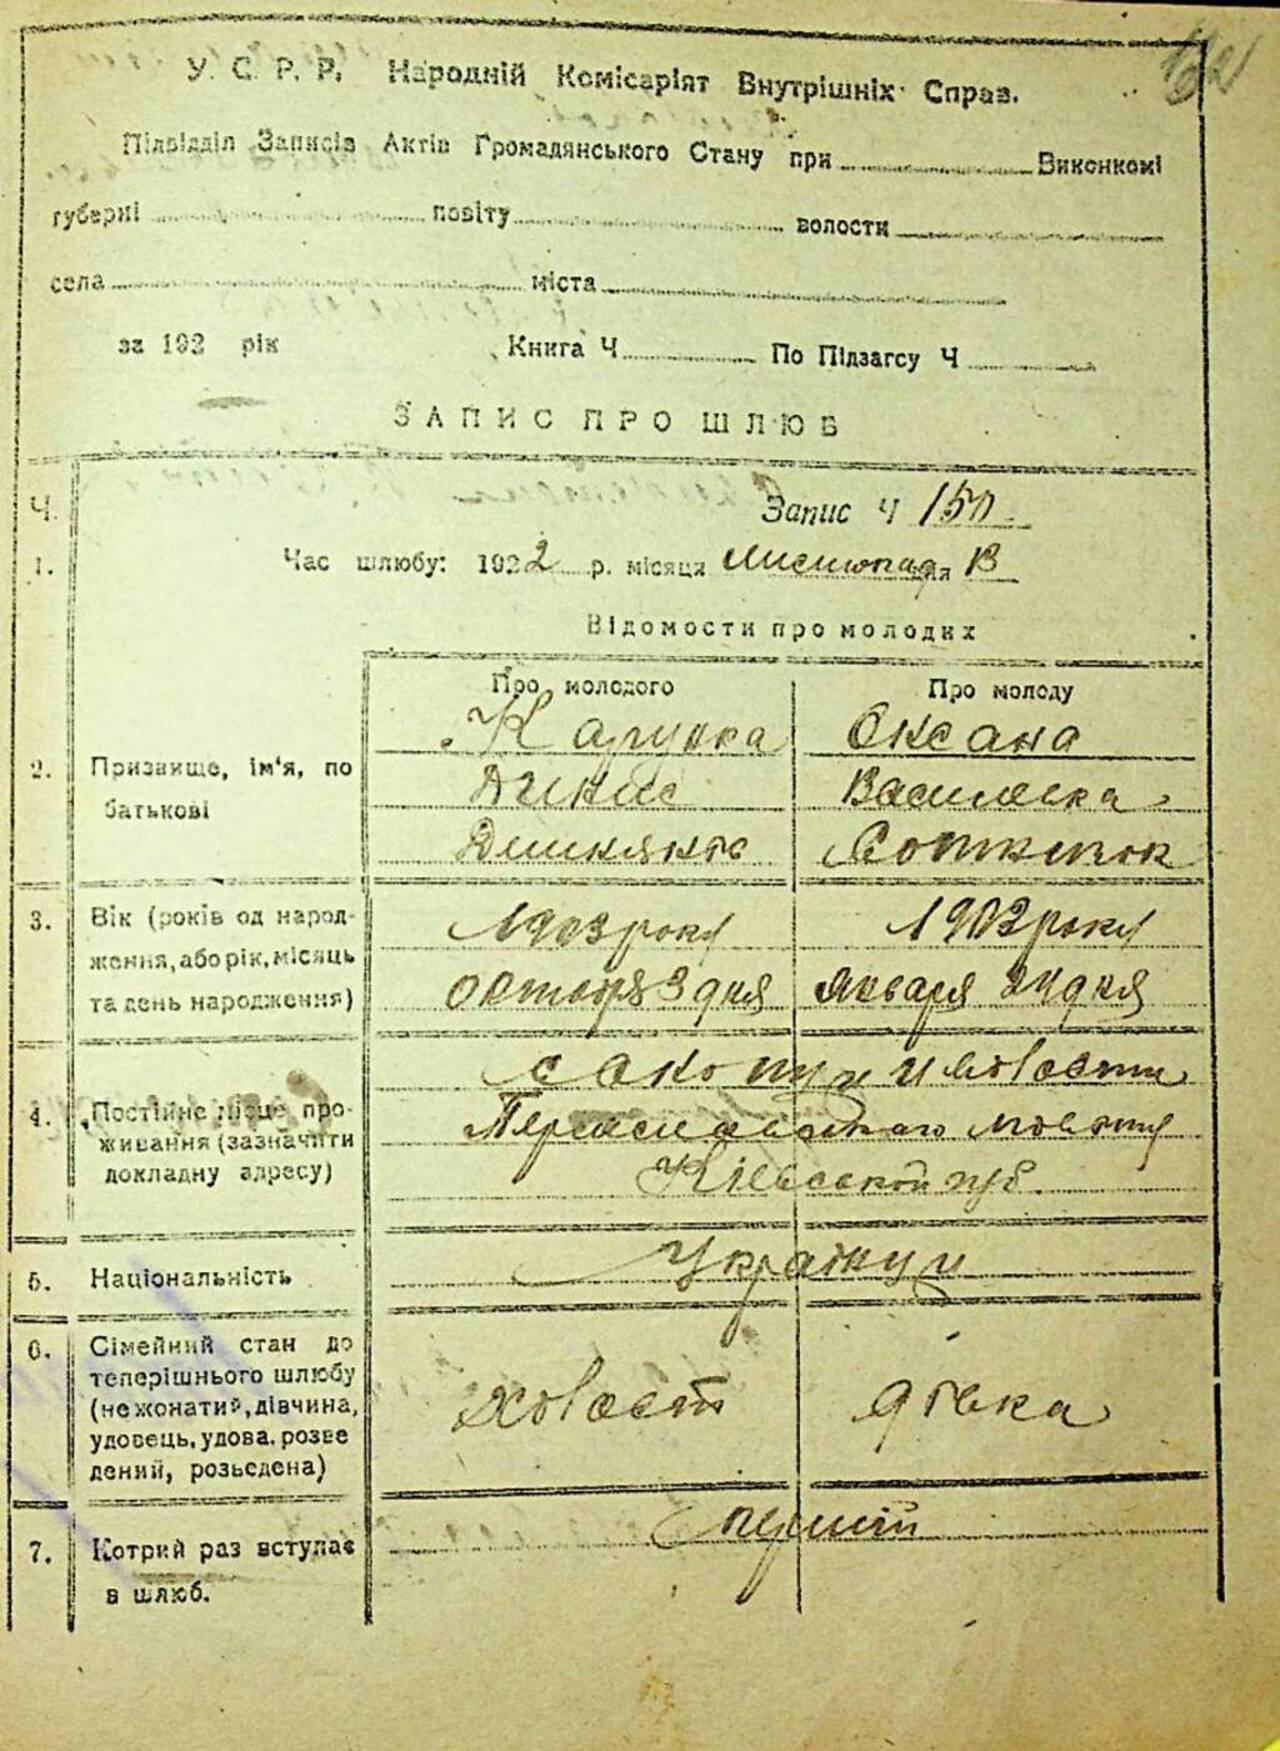 У. С. Р. Р. Народній Комісаріят Внутрішніх Справ.
Підвідділ Записів Актів Громадянського Стану при Виконкомі
губерні повіту волости
села міста
за 192 рік Книга Ч По Підзагсу Ч
ЗАПИС ПРО ШЛЮБ
Ч. Запис Ч 150
1. Час шлюбу: 1922 р. місяця Листопада дня 13
Відомости про молодих
Про молодого Про молоду
Оксана
2. Призвище, ім'я, по батькові
Василевна
3. Вік (років од народження, або рік, місяць та день народження)
1903 року 1903 року
октоіря 3 дня января 24 дня
4. Постійне місце проживання (зазначити докладну адресу)
волости
Переяславського повіту
Кіевской губ.
5. Національність
Українци
6. Сімейний стан до теперішнього шлюбу (нежонатий, дівчина, удовець, удова, розведений, розведена)
холост дівка
7. Котрий раз вступає в шлюб.
перший